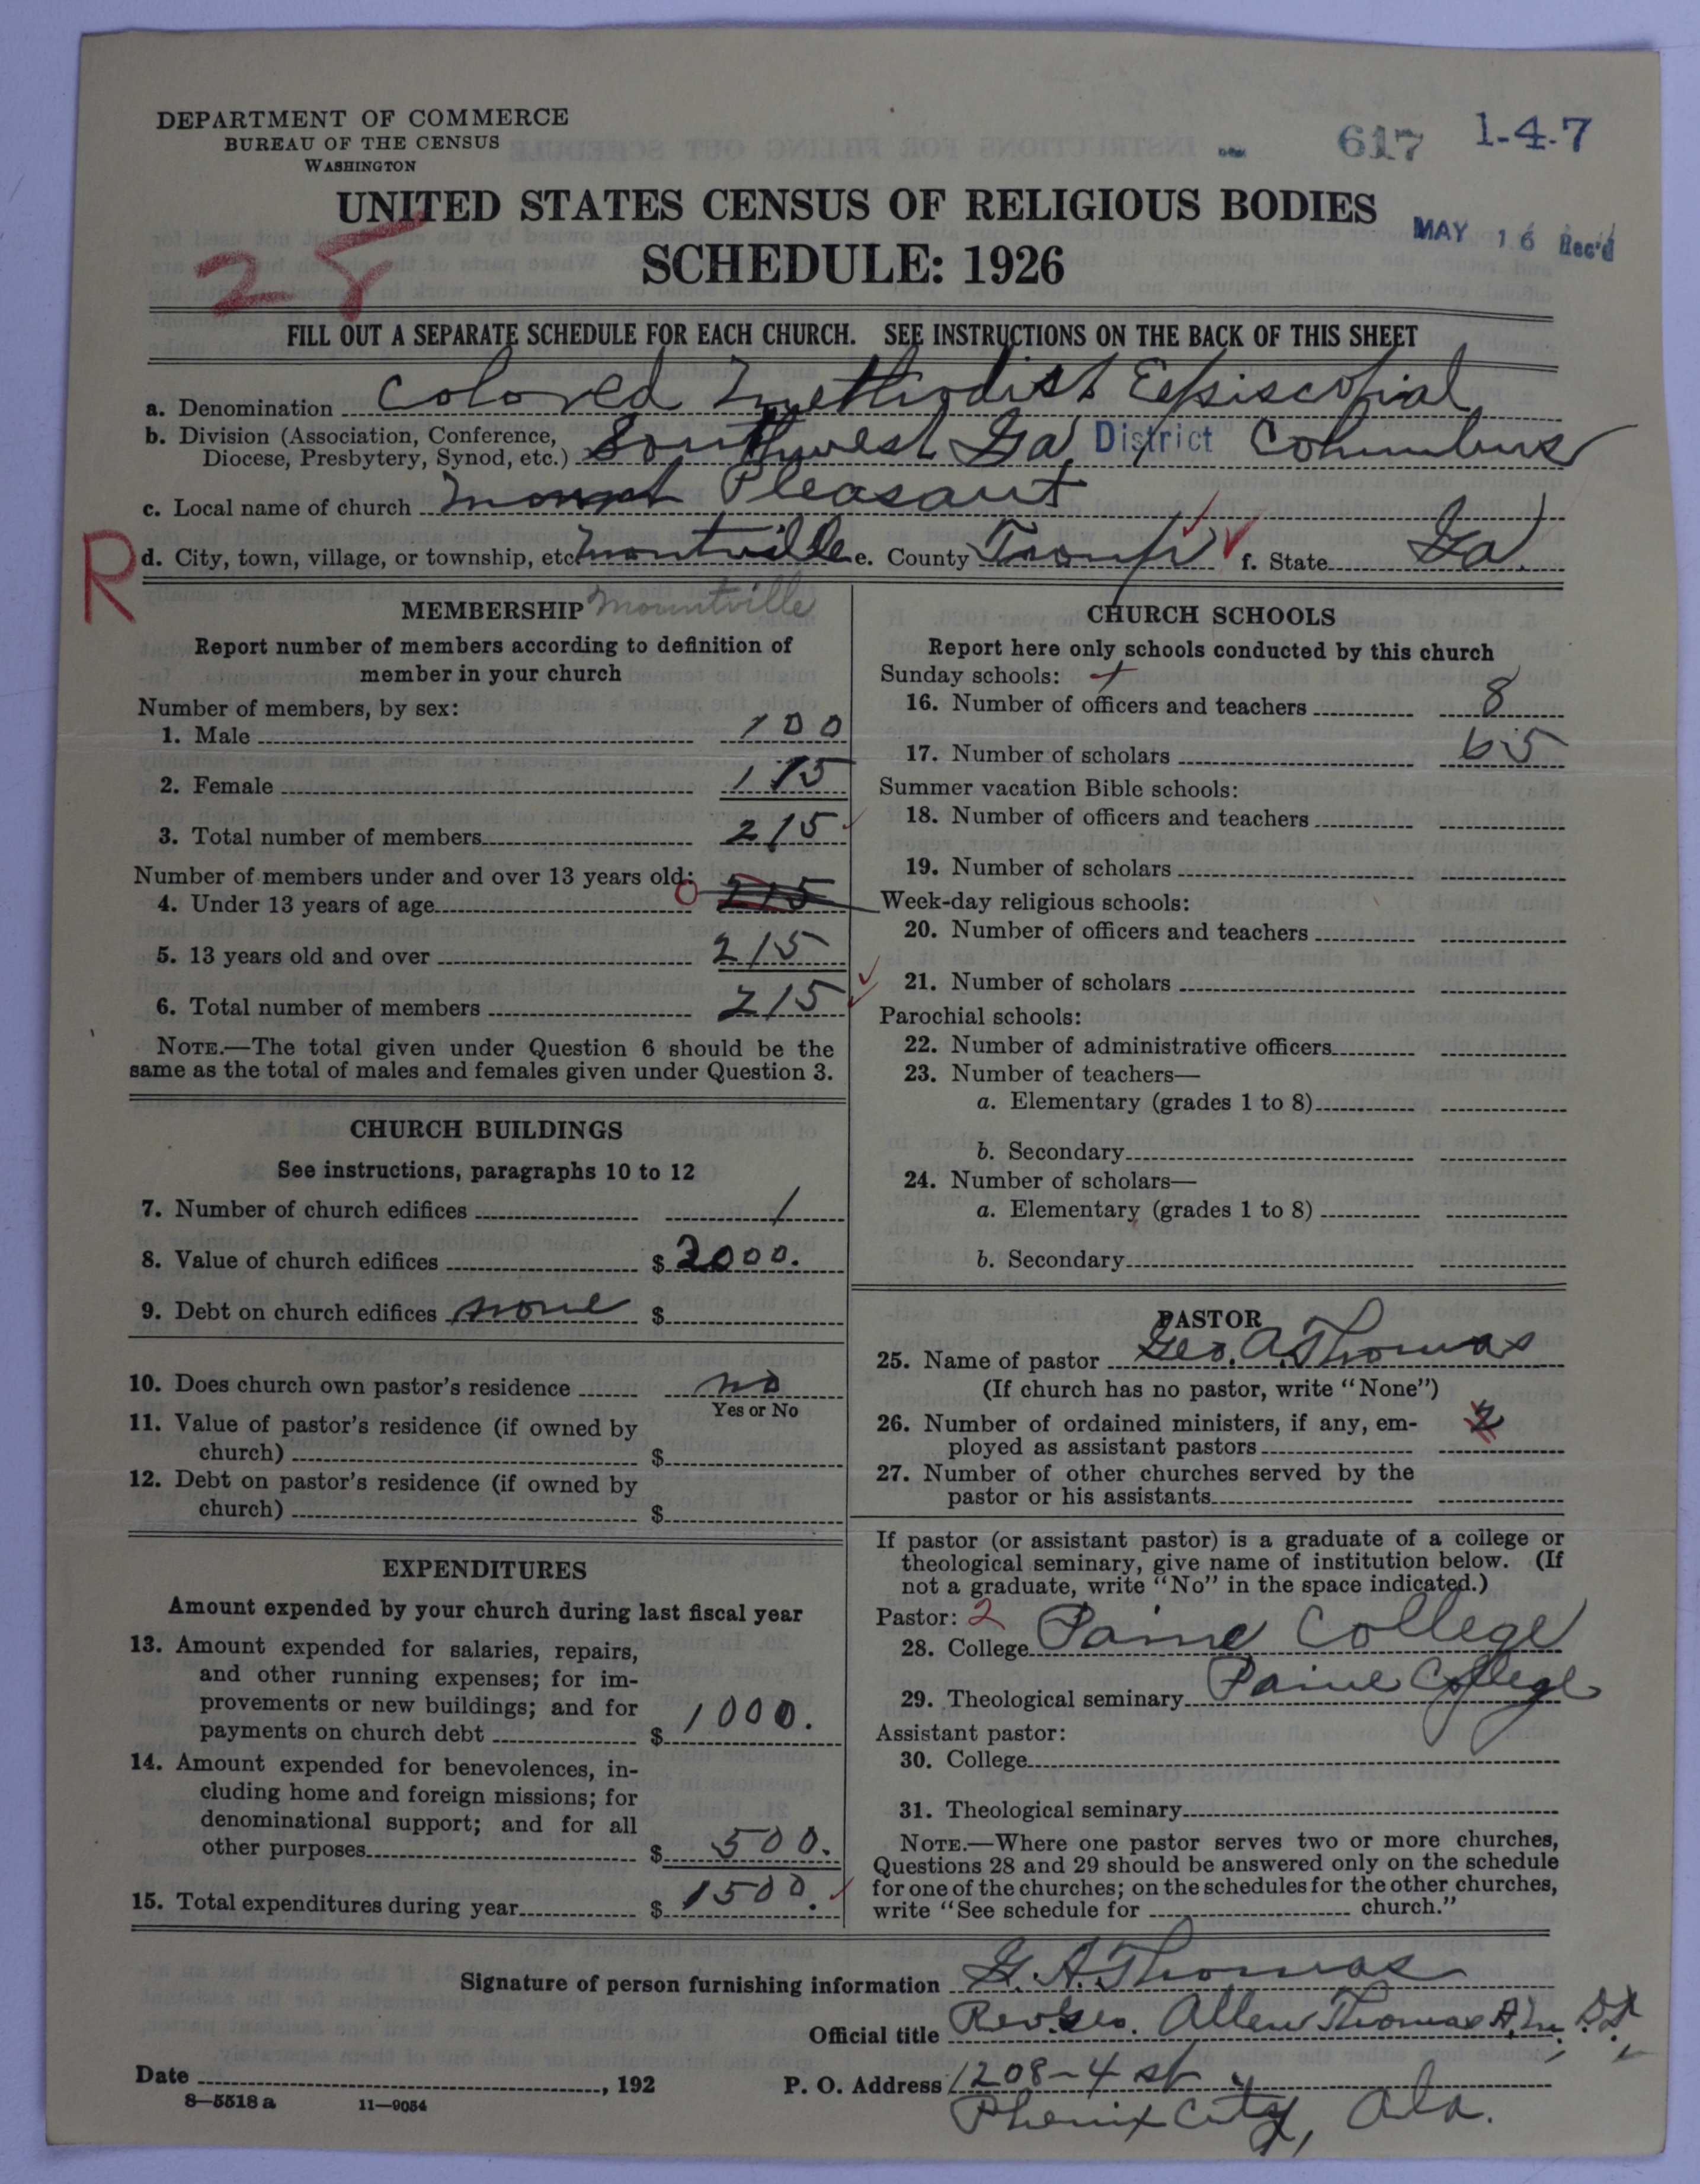 DEPARTMENT OF COMMERCE
BUREAU OF THE CENSUS
WASHINGTON
617 1-4-7
UNITED STATES CENSUS OF RELIGIOUS BODIES
SCHEDULE: 1926
MAY 16 Rec'd
28
FILL OUT A SEPARATE SCHEDULE FOR EACH CHURCH. SEE INSTRUCTIONS ON THE BACK OF THIS SHEET
a. Denomination Colored Methodist Episcopial
b. Division (Association, Conference, Diocese, Presbytery, Synod, etc.) Southwest Ga. District Columbus
c. Local name of church Mount Pleasant
R
d. City, town, village, or township, etc. Montville e. County Troup f. State Ga.
MEMBERSHIP Mountville
Report number of members according to definition of
member in your church
Number of members, by sex:
1. Male 100
2. Female 115
3. Total number of members 215
Number of members under and over 13 years old:
4. Under 13 years of age 0 215
5. 13 years old and over 215
6. Total number of members 215
NOTE.—The total given under Question 6 should be the
same as the total of males and females given under Question 3.
CHURCH BUILDINGS
See instructions, paragraphs 10 to 12
7. Number of church edifices 1
8. Value of church edifices $ 2000.
9. Debt on church edifices none $
10. Does church own pastor's residence no
Yes or No
11. Value of pastor's residence (if owned by
church) $
12. Debt on pastor's residence (if owned by
church) $
EXPENDITURES
Amount expended by your church during last fiscal year
13. Amount expended for salaries, repairs,
and other running expenses; for im-
provements or new buildings; and for
payments on church debt $ 1000.
14. Amount expended for benevolences, in-
cluding home and foreign missions; for
denominational support; and for all
other purposes $ 500.
15. Total expenditures during year $ 1500.
CHURCH SCHOOLS
Report here only schools conducted by this church
Sunday schools:
16. Number of officers and teachers 8
17. Number of scholars 65
Summer vacation Bible schools:
18. Number of officers and teachers
19. Number of scholars
Week-day religious schools:
20. Number of officers and teachers
21. Number of scholars
Parochial schools:
22. Number of administrative officers
23. Number of teachers—
a. Elementary (grades 1 to 8)
b. Secondary
24. Number of scholars—
a. Elementary (grades 1 to 8)
b. Secondary
PASTOR
25. Name of pastor Geo. A. Thomas
(If church has no pastor, write "None")
26. Number of ordained ministers, if any, em-
ployed as assistant pastors 2
27. Number of other churches served by the
pastor or his assistants
If pastor (or assistant pastor) is a graduate of a college or
theological seminary, give name of institution below. (If
not a graduate, write "No" in the space indicated.)
Pastor: 2
28. College Paine College
29. Theological seminary Paine College
Assistant pastor:
30. College
31. Theological seminary
NOTE.—Where one pastor serves two or more churches,
Questions 28 and 29 should be answered only on the schedule
for one of the churches; on the schedules for the other churches,
write "See schedule for church."
Signature of person furnishing information G. A. Thomas
Official title Rev. Geo. Allen Thomas A.M. D.D.
Date , 192 P. O. Address 1208-4 st
Phenix City, Ala.
8—5518 a 11—9054